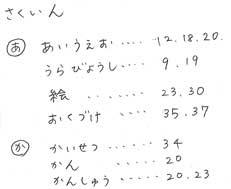 さくいん
あ あいうえお ・・・・ 12.18.20.
うらびょうし ・・・・ 9.19
絵 ・・・・・・・ 23.30
おくづけ ・・・・ 35.37
か かいせつ ・・・・・ 34
かん ・・・・・・ 20
かんしゅう ・・・・・ 20.23